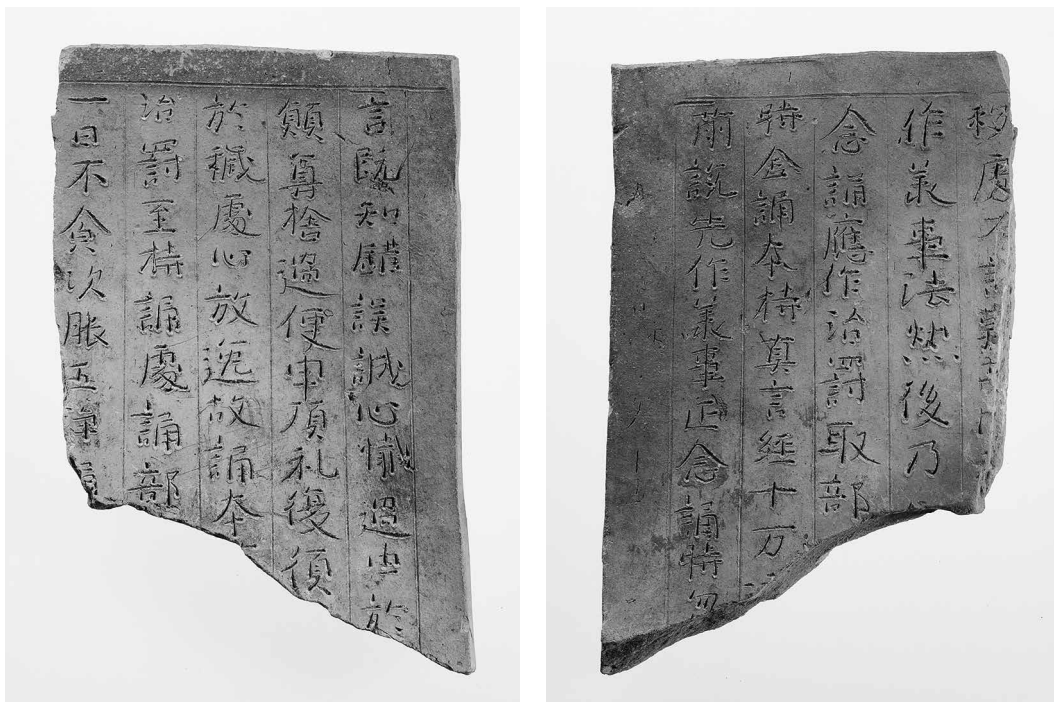 言既知錯誤誠心懺過由
願尊捨過便申頂礼復須
於穢處心放逸故誦本
治罰至持誦處誦部
一日不食次服五淨眞
移處不
作業事法然後乃
念誦應作治罰取部
時念誦本持真言經十万
前説先作業事正念誦時忽